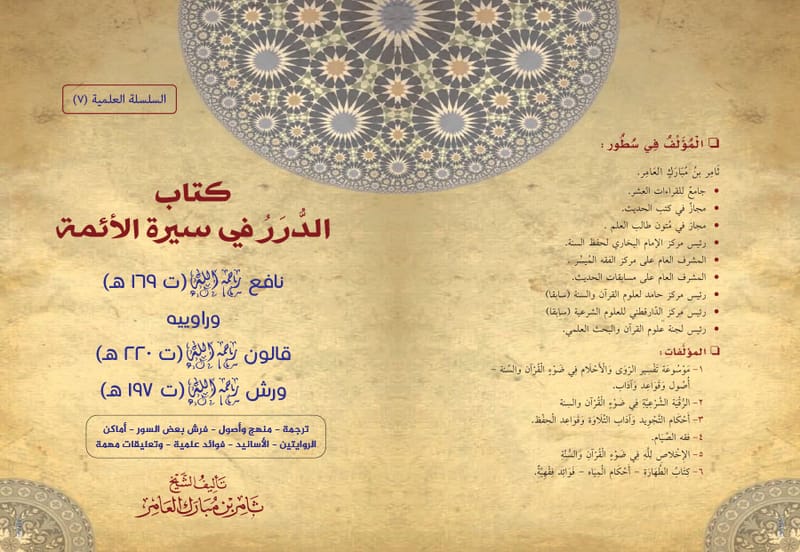 السلسلة العلمية (٧)
كتاب
الدُّرَرُ في سيرة الأئمة
نافع رحمه الله (ت ١٦٩ هـ)
وراوييه
قالون رحمه الله (ت ٢٢٠ هـ)
ورش رحمه الله (ت ١٩٧ هـ)
ترجمة - منهج وأصول - فرش بعض السور - أماكن
الروايتين - الأسانيد - فوائد علمية - وتعليقات مهمة
تأليف الشيخ
ثامر بن مبارك العامر
❑ الْمُؤَلِّفُ فِي سُطُور :
ثَامِر بنُ مُبَارَكِ العَامِر.
• جامعٌ للقراءات العشر.
• مجازٌ في كتب الحديث.
• مجاز في مُتون طالب العلم .
• رئيس مركز الإمام البخاري لحفظ السنة.
• المشرف العام على مركز الفقه المُيسَّر .
• المشرف العام على مسابقات الحديث.
• رئيس مركز حامد لعلوم القرآن والسنة (سابقا)
• رئيس مركز الدَّارقطني للعلوم الشرعية (سابقا)
• رئيس لجنة علوم القرآن والبحث العلمي.
❑ المؤلَّفات :
١- مَوْسُوعَة تَفْسِير الرّؤى وَالْأَحْلَام فِي ضَوْءِ القُرْآن والسُّنَّة -
أُصُول وَقَوَاعِد وَآدَاب.
٢- الرُّقْيَة الشَّرْعِيَّة فِي ضَوْءِ الْقُرْآن والسنة
٣- أَحْكَام التَّجْوِيد وَآدَاب التِّلَاوَة وَقَوَاعِد الْحِفْظ.
٤- فقه الصِّيَام.
٥- الإِخْلَاص لِلَّهِ فِي ضَوْءِ الْقُرْآن وَالسُّنَّةِ
٦- كِتَابُ الطَّهَارَة - أَحْكَام الْمِيَاه - فَوَائِد فِقْهِيَّةٌ.